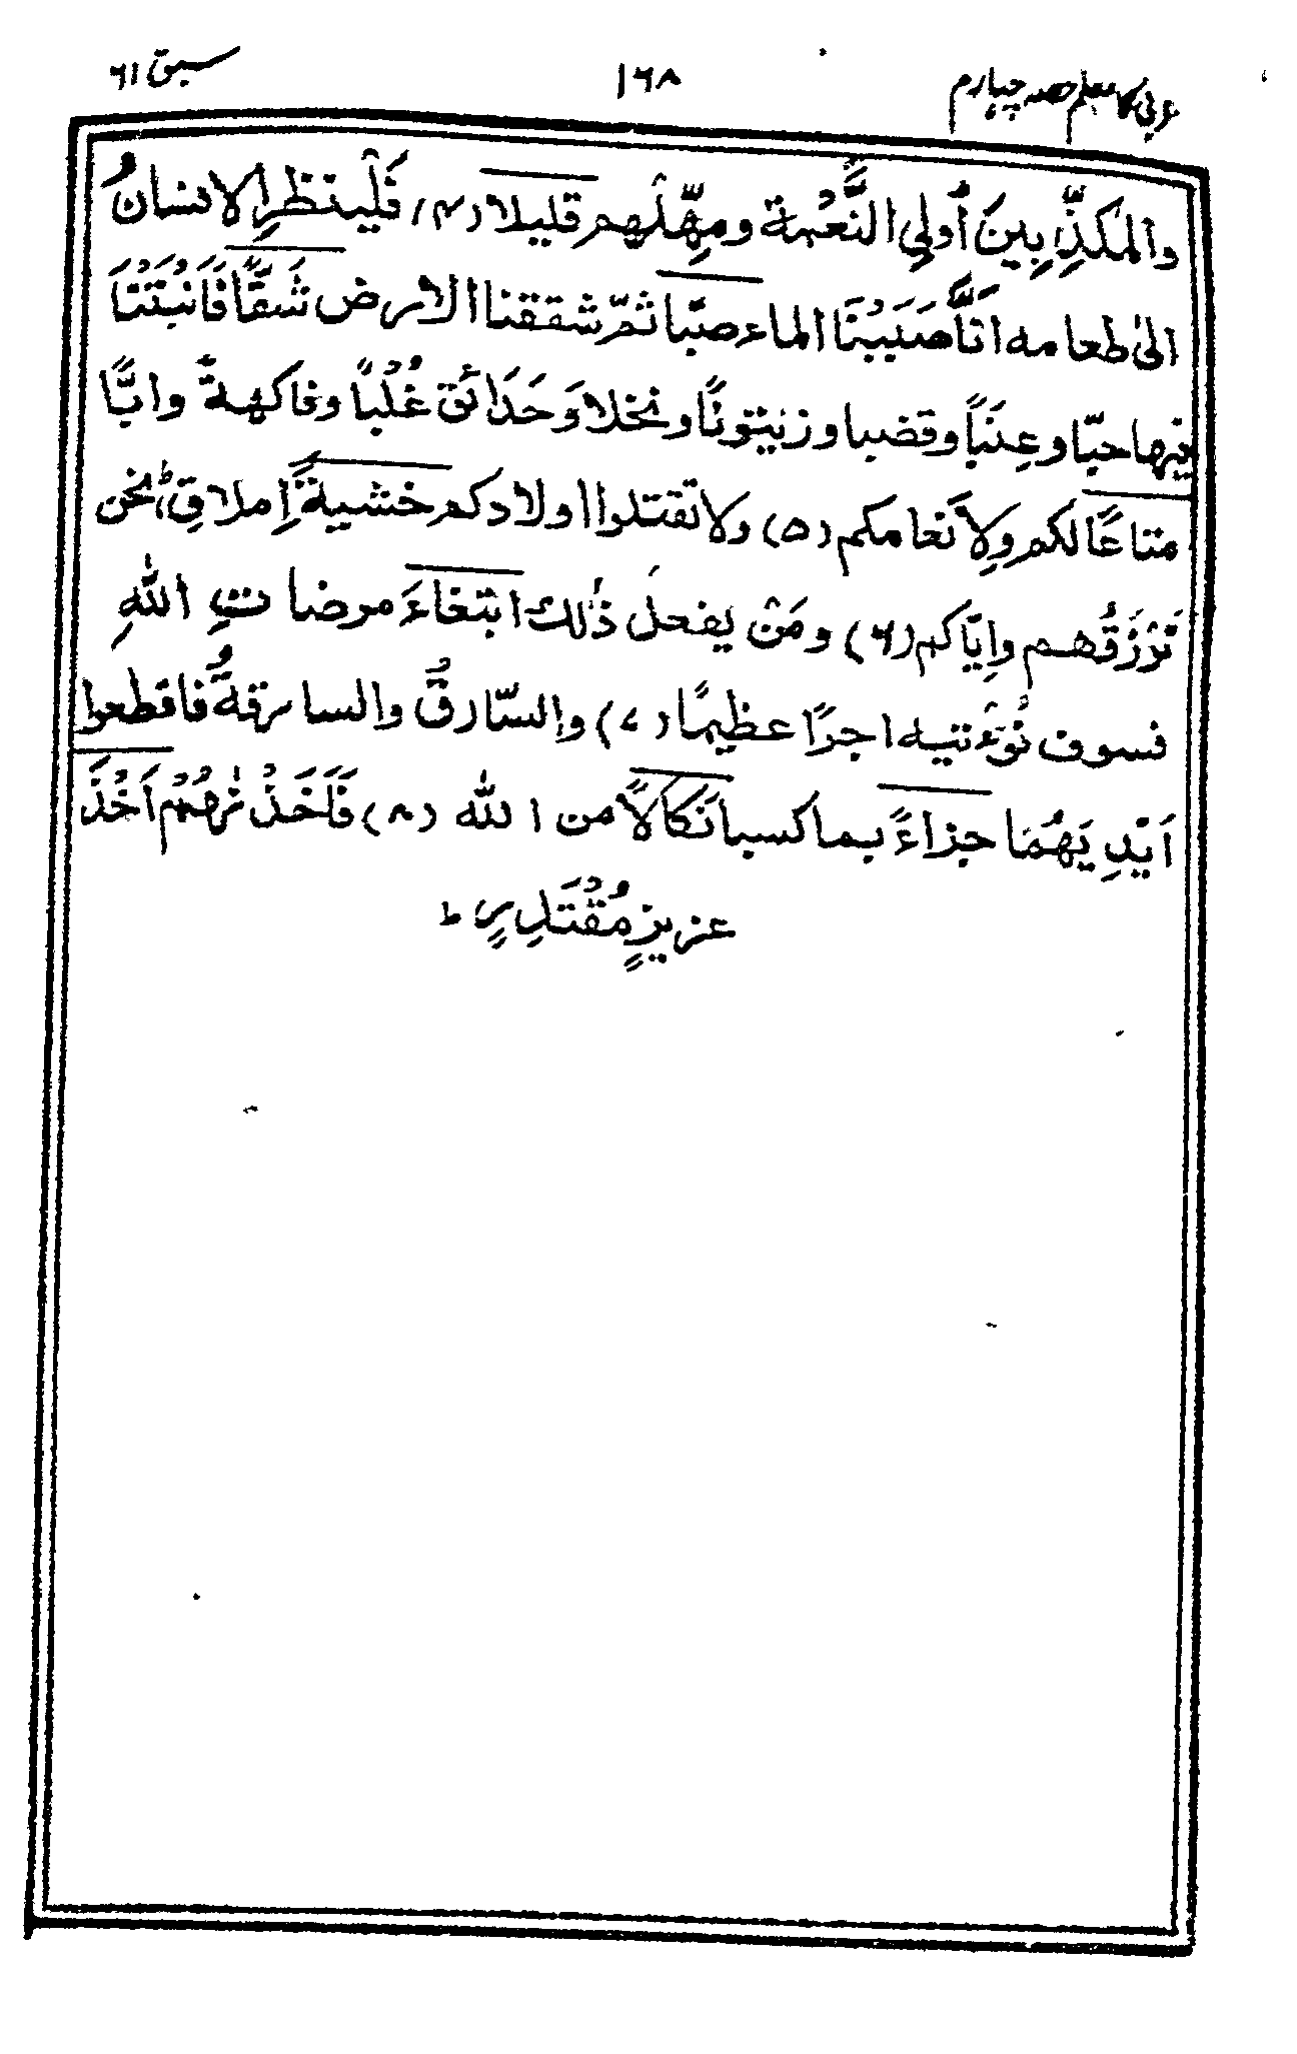 عربی کا معلم حصہ چہارم ۱۶۸ سبق ۶۱
والمُكَذِّبِينَ أُولِي النَّعْمَةِ ومهِّلْهم قليلا (۴) فَلْينظرِ الانسانُ
الىٰ طعامه انَّا صَبَبْنَا الماء صبّا ثمّ شققنا الارض شَقًّا فَاَنْبَتْنَا
فيها حبّا وعِنَبًا وقضبا وزيتونًا ونخلا وَحَدَائق غُلْبًا وفاكهةً وابًّا
متاعًا لكم ولِاَنعامكم (۵) ولا تقتلوا اولادكم خشيةَ اِملاقٍ ط نحن
نَرْزُقُهم واِيّاكم (۶) ومَنْ يفعل ذٰلك ابتغاءَ مرضاتِ اللهِ
فسوف نُؤتيه اجرًا عظيمًا (۷) والسّارقُ والسارقةُ فاقطعوا
اَيْدِيَهُمَا جزاءً بما كسبا نَكَالًا من الله (۸) فَاَخَذْنٰهُمْ اَخْذَ
عزيزٍ مُقْتَدِرٍ ط